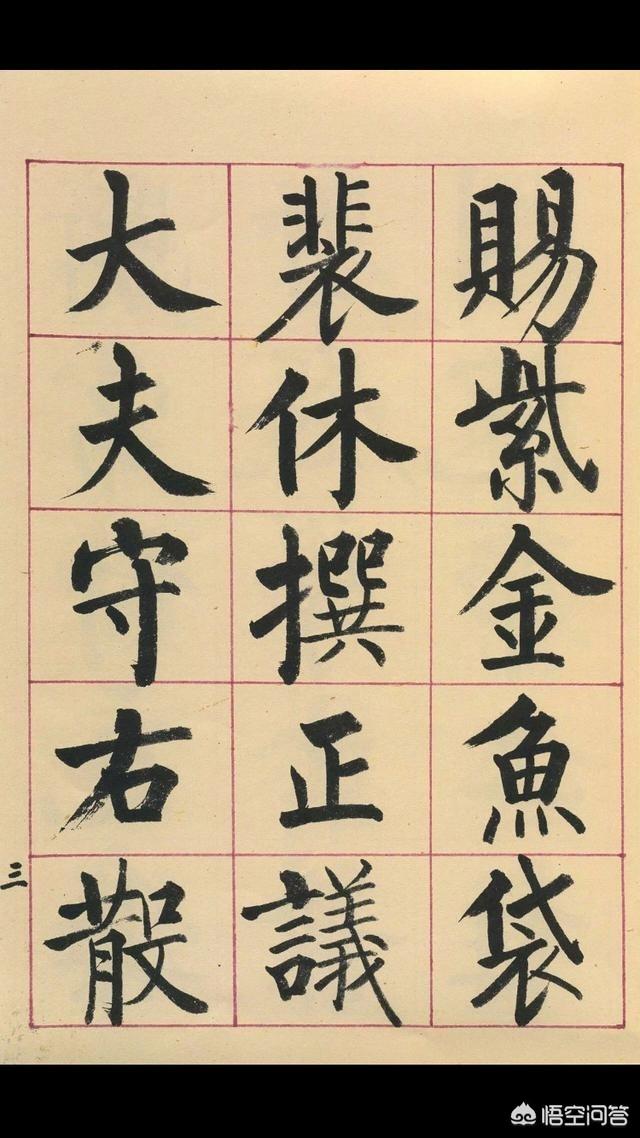 賜紫金魚袋
裴休撰正議
大夫守右散
三
悟空问答